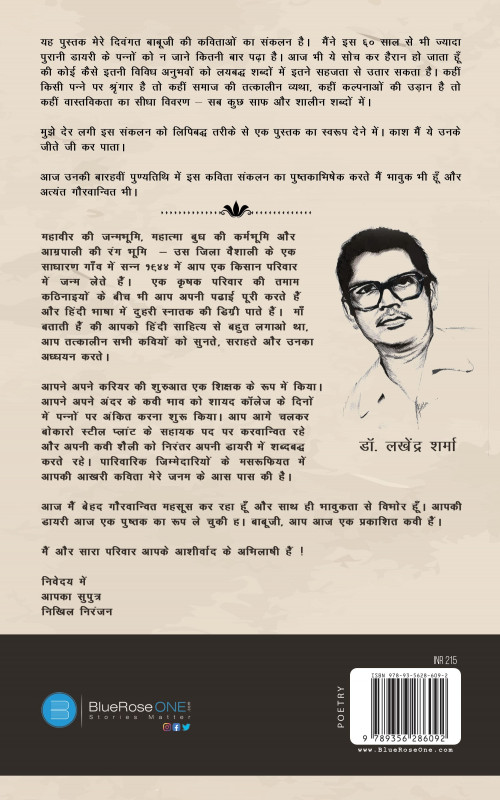 यह पुस्तक मेरे दिवंगत बाबूजी की कविताओं का संकलन है। मैंने इस ६० साल से भी ज्यादा
पुरानी डायरी के पन्नों को न जाने कितनी बार पढ़ा है। आज भी ये सोच कर हैरान हो जाता हूँ
की कोई कैसे इतनी विविध अनुभवों को लयबद्ध शब्दों में इतने सहजता से उतार सकता है। कहीं
किसी पन्ने पर श्रृंगार है तो कहीं समाज की तत्कालीन व्यथा, कहीं कल्पनाओं की उड़ान है तो
कहीं वास्तविकता का सीधा विवरण – सब कुछ साफ और शालीन शब्दों में।
मुझे देर लगी इस संकलन को लिपिबद्ध तरीके से एक पुस्तक का स्वरूप देने में। काश मैं ये उनके
जीते जी कर पाता।
आज उनकी बारहवीं पुण्यतिथि में इस कविता संकलन का पुष्तकाभिषेक करते मैं भावुक भी हूँ और
अत्यंत गौरवान्वित भी।
महावीर की जन्मभूमि, महात्मा बुध की कर्मभूमि और
आम्रपाली की रंग भूमि – उस जिला वैशाली के एक
साधारण गाँव में सन्न १९४४ में आप एक किसान परिवार
में जन्म लेते हैं। एक कृषक परिवार की तमाम
कठिनाइयों के बीच भी आप अपनी पढाई पूरी करते हैं
और हिंदी भाषा में दुहरी स्नातक की डिग्री पाते हैं। माँ
बताती हैं की आपको हिंदी साहित्य से बहुत लगाओ था,
आप तत्कालीन सभी कवियों को सुनते, सराहते और उनका
अध्धयन करते।
आपने अपने करियर की शुरुआत एक शिक्षक के रूप में किया।
आपने अपने अंदर के कवी भाव को शायद कॉलेज के दिनों
में पन्नों पर अंकित करना शुरू किया। आप आगे चलकर
बोकारो स्टील प्लांट के सहायक पद पर करवान्वित रहे
और अपनी कवी शैली को निरंतर अपनी डायरी में शब्दबद्ध
करते रहे। पारिवारिक जिम्मेदारियों के मसरूफियत में
आपकी आखरी कविता मेरे जनम के आस पास की है।
डॉ. लखेंद्र शर्मा
आज मैं बेहद गौरवान्वित महसूस कर रहा हूँ और साथ ही भावुकता से विभोर हूँ। आपकी
डायरी आज एक पुष्तक का रूप ले चुकी ह। बाबूजी, आप आज एक प्रकाशित कवी हैं।
मैं और सारा परिवार आपके आशीर्वाद के अभिलाषी हैं !
निवेदय में
आपका सुपुत्र
निखिल निरंजन
INR 215
POETRY
ISBN 978-93-5628-609-2
9 789356 286092
www.BlueRoseOne.com
BlueRose ONE
Stories Matter